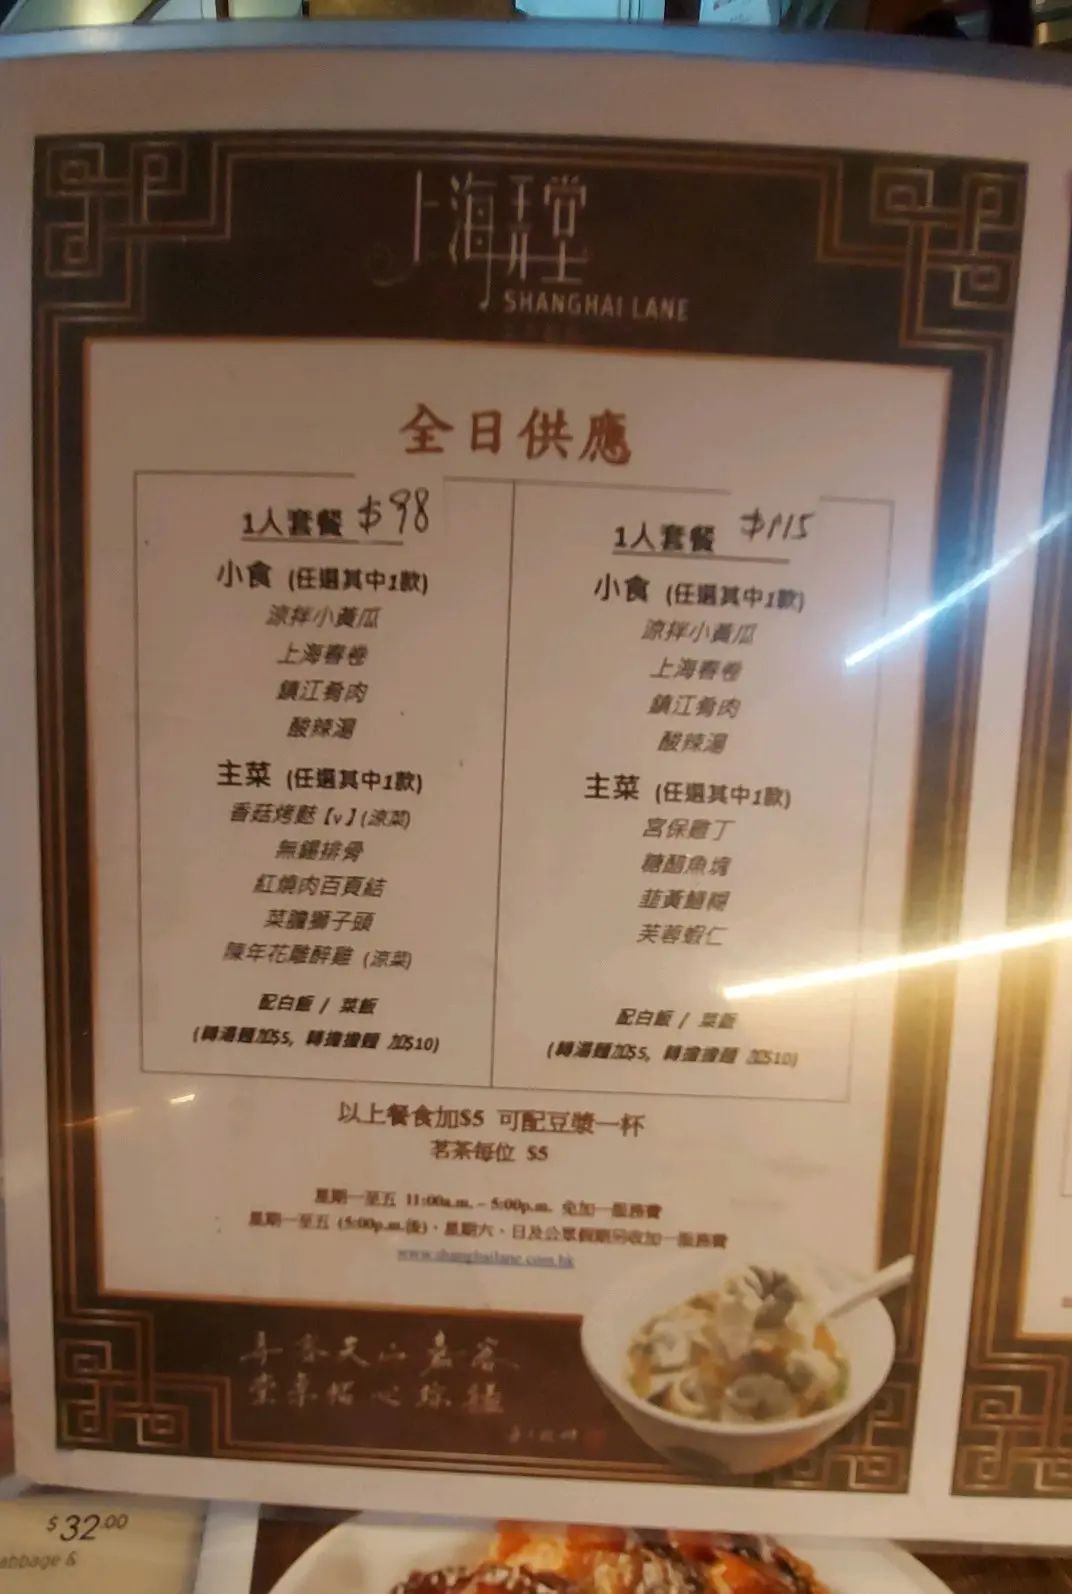 上海弄堂
SHANGHAI LANE
全日供應
1人套餐 $98
小食 (任選其中1款)
涼拌小黃瓜
上海春卷
鎮江肴肉
酸辣湯
主菜 (任選其中1款)
香菇烤麩【v】(涼菜)
無錫排骨
紅燒肉百頁結
菜膽獅子頭
陳年花雕醉雞 (涼菜)
配白飯 / 菜飯
(轉湯麵加$5, 轉擔擔麵 加$10)
1人套餐 $115
小食 (任選其中1款)
涼拌小黃瓜
上海春卷
鎮江肴肉
酸辣湯
主菜 (任選其中1款)
宮保雞丁
糖醋魚塊
韮黃鱔糊
芙蓉蝦仁
配白飯 / 菜飯
(轉湯麵加$5, 轉擔擔麵 加$10)
以上餐食加$5 可配豆漿一杯
茗茶每位 $5
星期一至五 11:00a.m. – 5:00p.m. 免加一服務費
星期一至五 (5:00p.m.後)、星期六、日及公眾假期另收加一服務費
www.shanghailane.com.hk
$32.00
abbage &